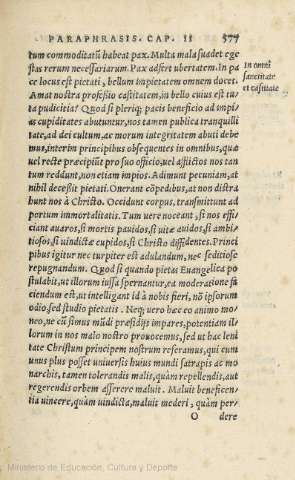 PARAPHRASIS. CAP. II 577
tum commoditatũ habeat pax. Multa mala suadet ege
stas rerum necessariarum. Pax adfert ubertatem. In pa
ce locus est pietati, bellum impietatem omnem docet.
Amat nostra professio castitatem, in bello cuius est tu-
ta pudicitia? Quod si pleriq; pacis beneficio ad impi-
as cupiditates abutuntur, nos tamen publica tranquilli
tate, ad dei cultum, ac morum integritatem abuti debe
mus, interim principibus obsequentes in omnibus, qua
uel recte præcipiũt pro suo officio, uel afflictos nos tan
tum reddunt, non etiam impios. Adimunt pecuniam, at
nihil decessit pietati. Onerant cõpedibus, at non distra
hunt nos à Christo. Occidunt corpus, transmittunt ad
portum immortalitatis. Tum uere noceant, si nos effi-
ciant auaros, si mortis pauidos, si uitæ auidos, si ambi-
tiosos, si uindictæ cupidos, si Christo diffidentes. Princi
pibus igitur nec turpiter est adulandum, nec seditiose
repugnandum. Quod si quando pietas Euangelica po
stulabit, ut illorum iussa spernantur, ea moderatione fa
ciendum est, ut intelligant id à nobis fieri, nõ ipsorum
odio, sed studio pietatis. Neq; uero hæc eo animo mo-
neo, ne cũ simus mũdi præsidijs impares, potentiam il-
lorum in nos malo nostro prouocemus, sed ut hac leni
tate Christum principem nostrum referamus, qui cum
unus plus posset uniuersis huius mundi satrapis ac mo
narchis, tamen tolerandis malis, quàm repellendis, aut
regerendis orbem asserere maluit. Maluit beneficen-
tia uincere, quàm uindicta, maluit mederi, quàm per-
O dere
In omni
sanctitate
et castitate
Ministerio de Educación, Cultura y Deporte